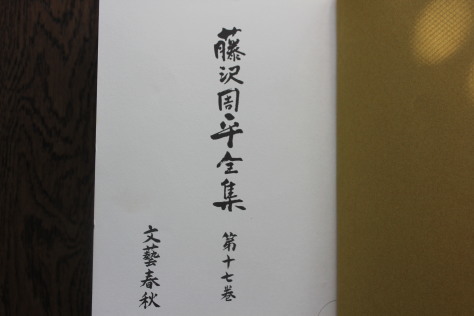 藤沢周平全集
第十七巻
文藝春秋